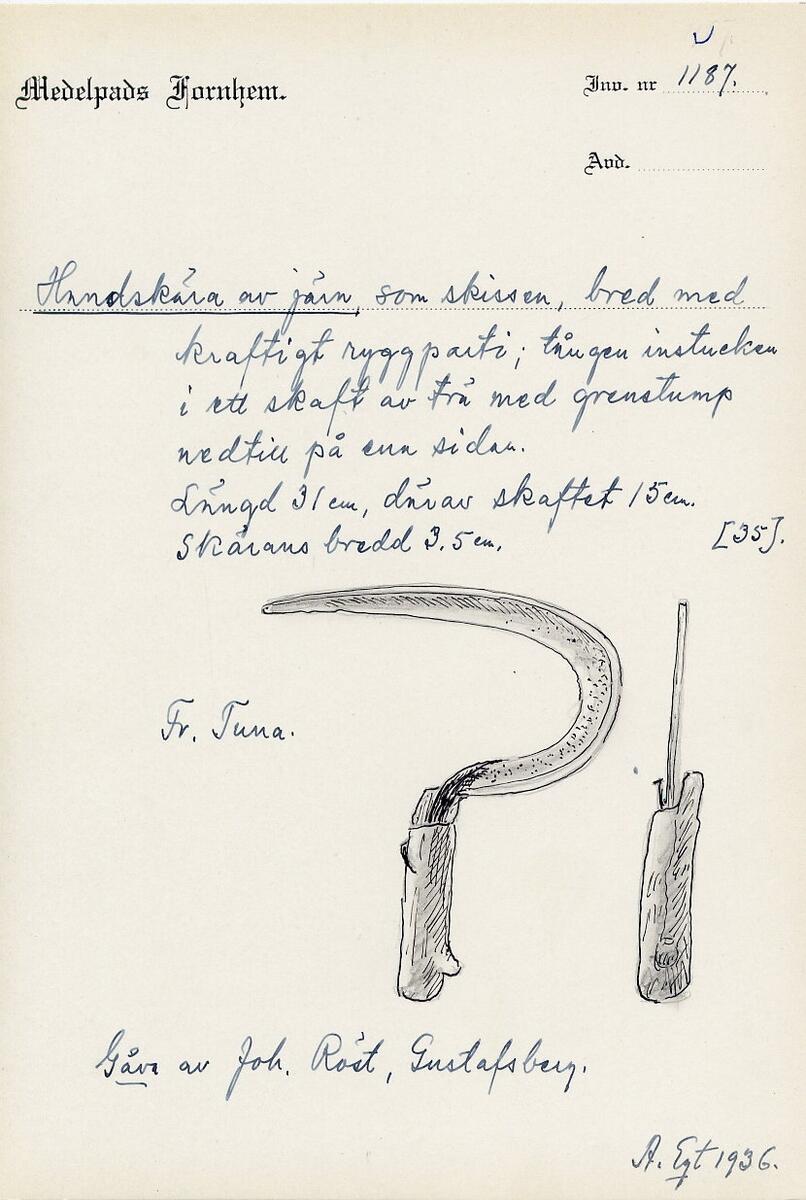 Medelpads Fornhem.
Inv. nr 1187.
Avd.
Handskära av järn, som skissen, bred med
kraftigt ryggparti; tången instucken
i ett skaft av trä med grenstump
nedtill på ena sidan.
Längd 31 cm, därav skaftet 15 cm.
Skärans bredd 3.5 cm. [35].
Fr. Tuna.
Gåva av Joh. Röst, Gustafsberg.
A. Egt 1936.